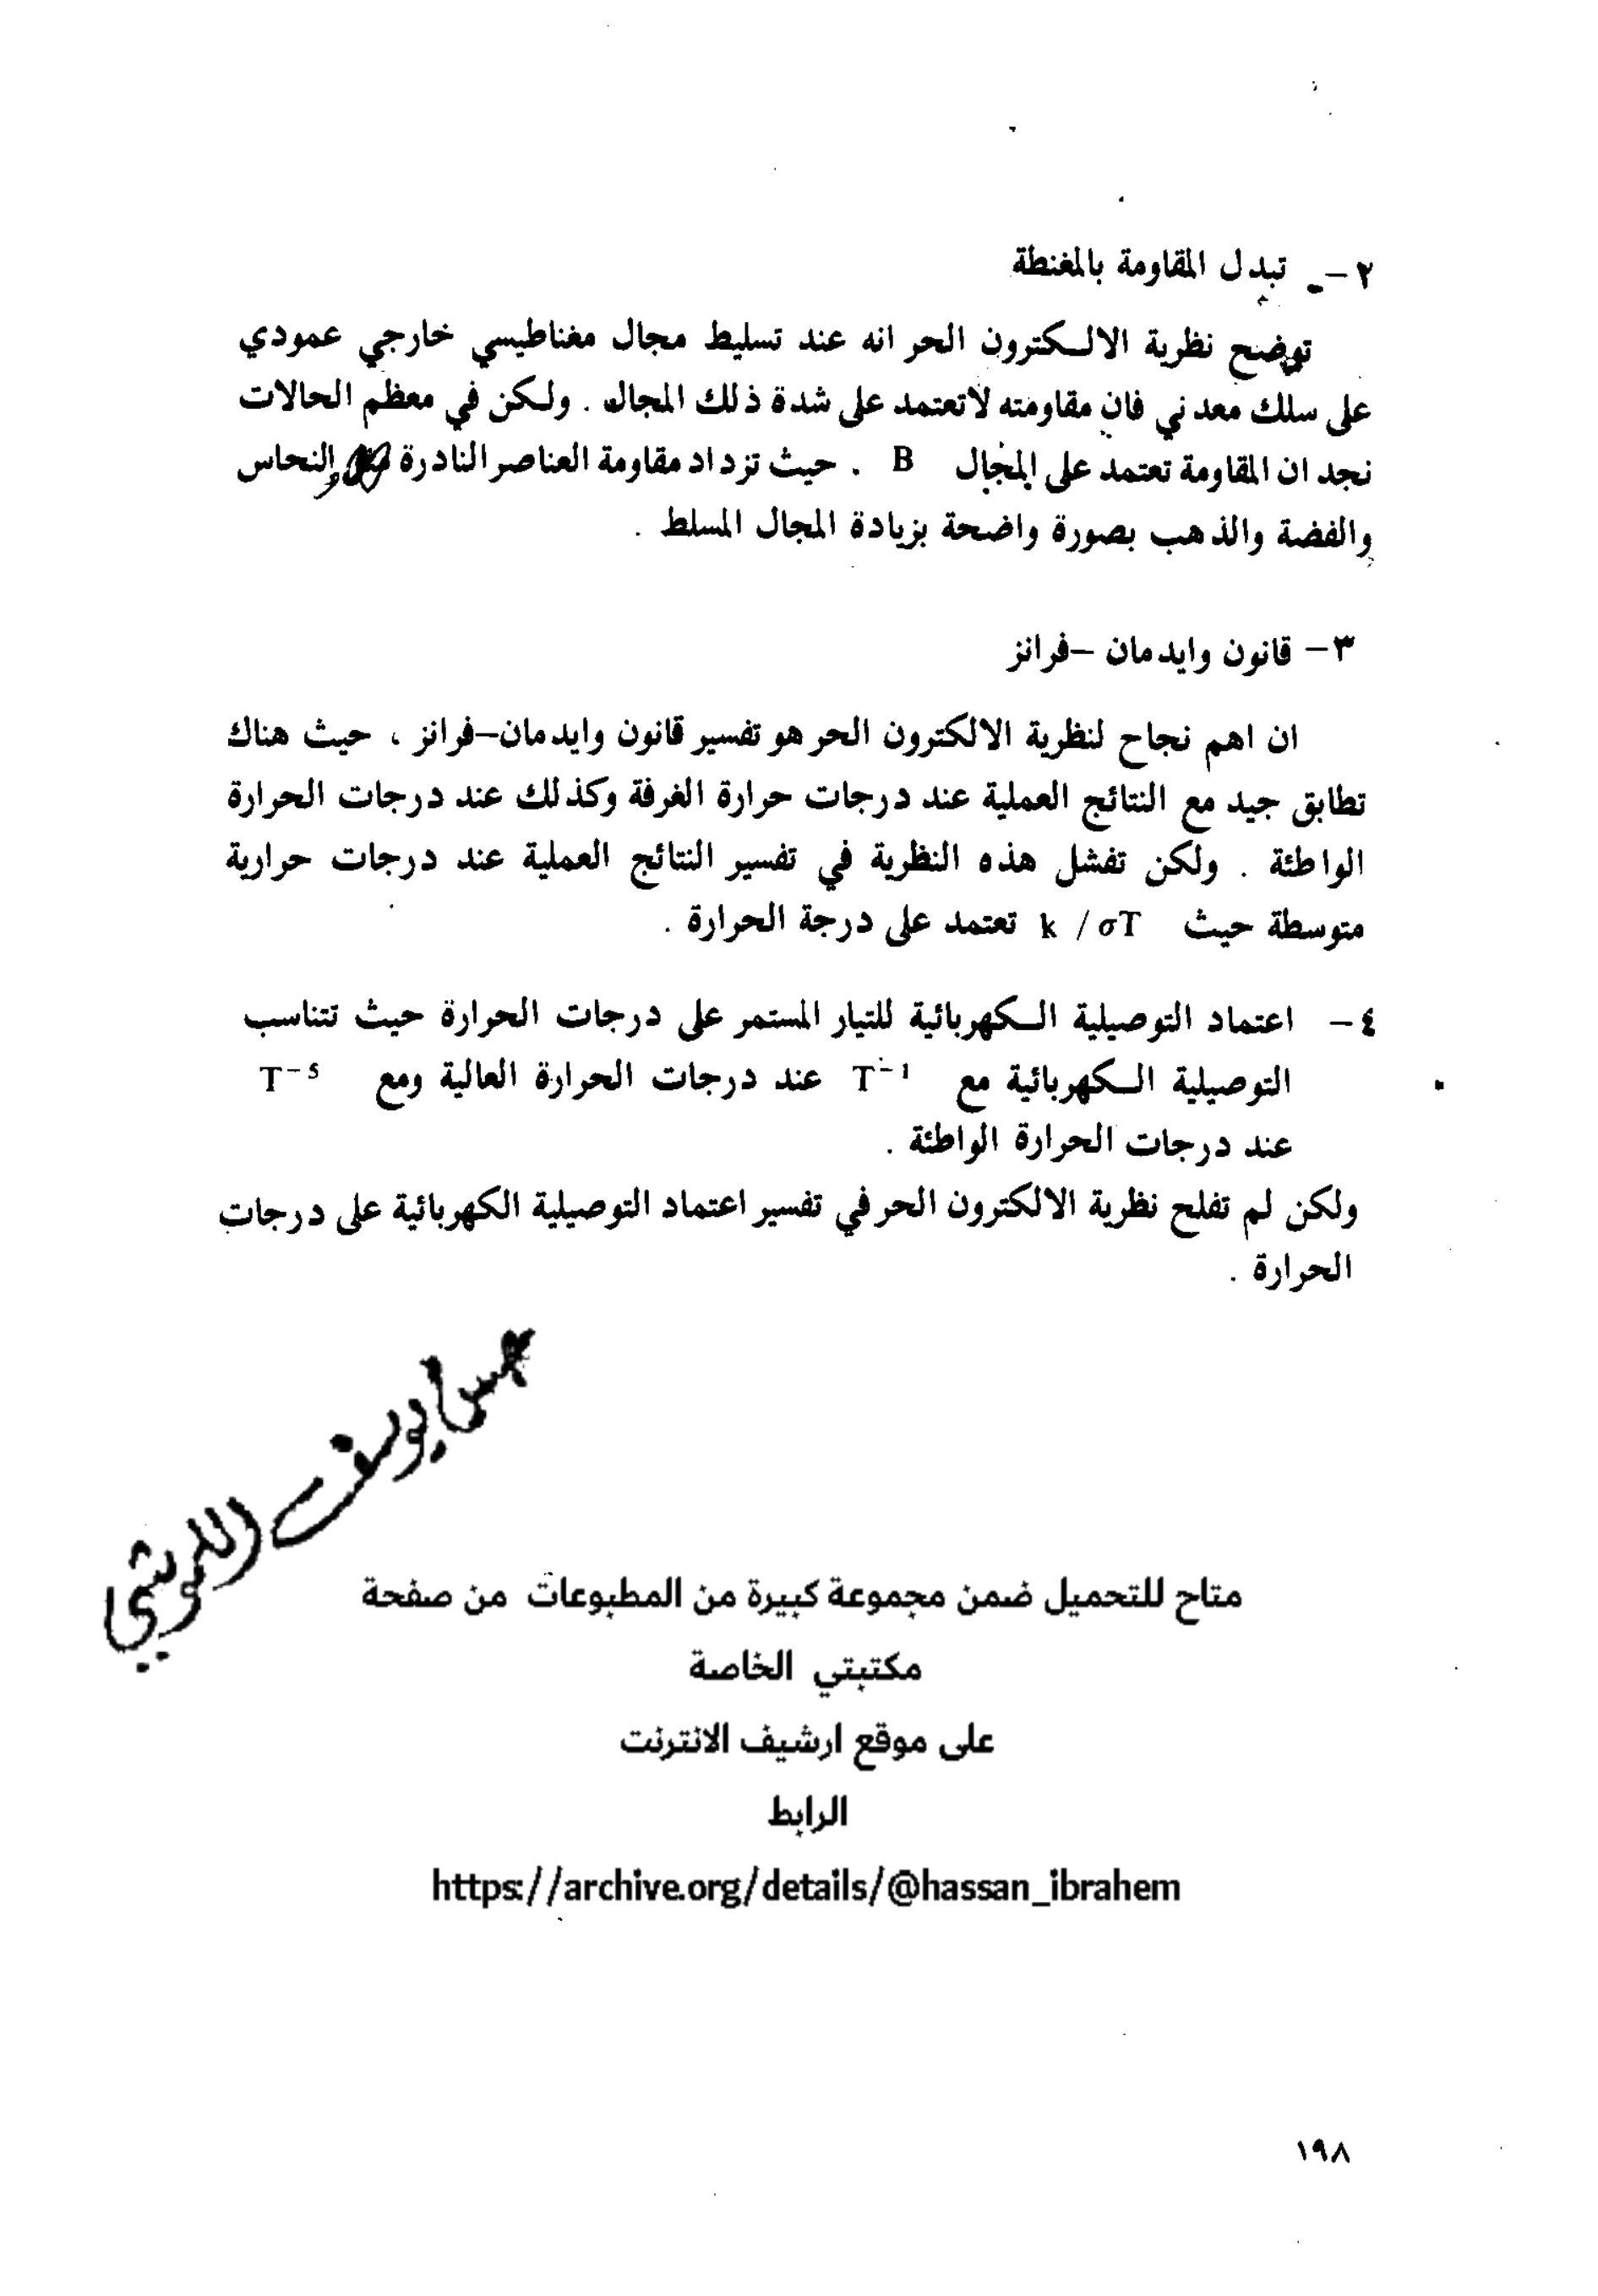 ٢ - تبدل المقاومة بالمغنطة
توضح نظرية الالكترون الحر انه عند تسليط مجال مغناطيسي خارجي عمودي
على سلك معدني فان مقاومته لاتعتمد على شدة ذلك المجال . ولكن في معظم الحالات
نجد ان المقاومة تعتمد على المجال B . حيث تزداد مقاومة العناصر النادرة والنحاس
والفضة والذهب بصورة واضحة بزيادة المجال المسلط .
٣ - قانون وايدمان -فرانز
ان اهم نجاح لنظرية الالكترون الحر هو تفسير قانون وايدمان-فرانز ، حيث هناك
تطابق جيد مع النتائج العملية عند درجات حرارة الغرفة وكذلك عند درجات الحرارة
الواطئة . ولكن تفشل هذه النظرية في تفسير النتائج العملية عند درجات حرارية
متوسطة حيث k / σT تعتمد على درجة الحرارة .
٤ - اعتماد التوصيلية الكهربائية للتيار المستمر على درجات الحرارة حيث تتناسب
التوصيلية الكهربائية مع T⁻¹ عند درجات الحرارة العالية ومع T⁻⁵
عند درجات الحرارة الواطئة .
ولكن لم تفلح نظرية الالكترون الحر في تفسير اعتماد التوصيلية الكهربائية على درجات
الحرارة .
متاح للتحميل ضمن مجموعة كبيرة من المطبوعات من صفحة
مكتبتي الخاصة
على موقع ارشيف الانترنت
الرابط
https://archive.org/details/@hassan_ibrahem
١٩٨